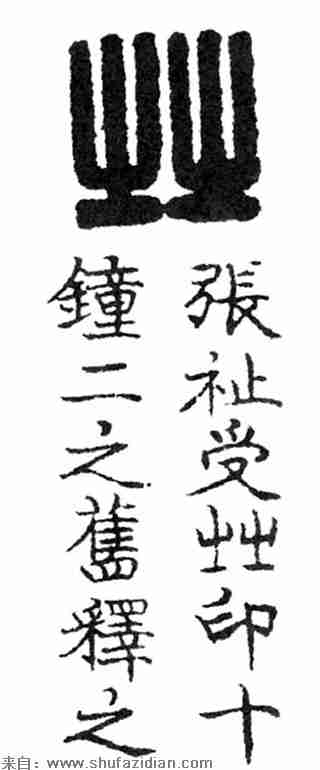 張祉受印十
鐘二之舊釋之
来自：www.shufazidian.com